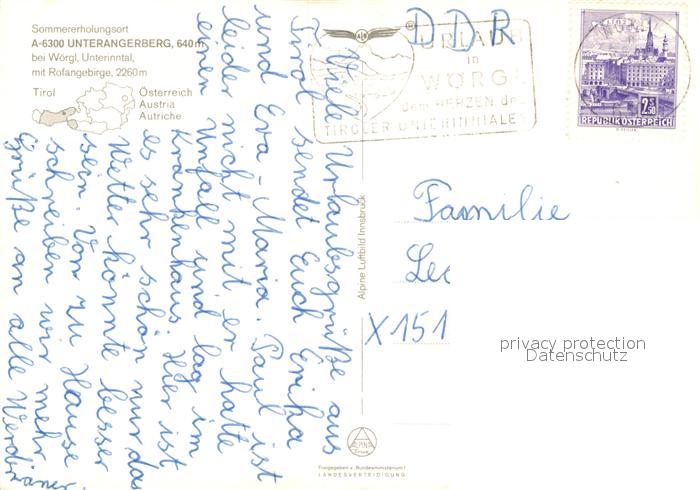 Sommererholungsort
A-6300 UNTERANGERBERG, 640 m
bei Wörgl, Unterinntal,
mit Rofangebirge, 2260 m
Tirol
Österreich
Austria
Autriche
Viele Urlaubsgrüße aus
Tirol sendet Euch Erika
und Eva-Maria. Paul ist
leider nicht mit er hatte
einen Unfall und lag im
Krankenhaus. Hier ist
es sehr schön nur das
Wetter könnte besser
sein. Von zu Hause
schreiben wir mehr
Grüße an alle
DDR
URLAUB
in
WÖRGL
dem HERZEN des
TIROLER UNTERINNTALES
2 S 50
REPUBLIK ÖSTERREICH
Alpine Luftbild Innsbruck
Familie
X 151
privacy protection
Datenschutz
ALPINE
Freigegeben v. Bundesministerium f.
LANDESVERTEIDIGUNG